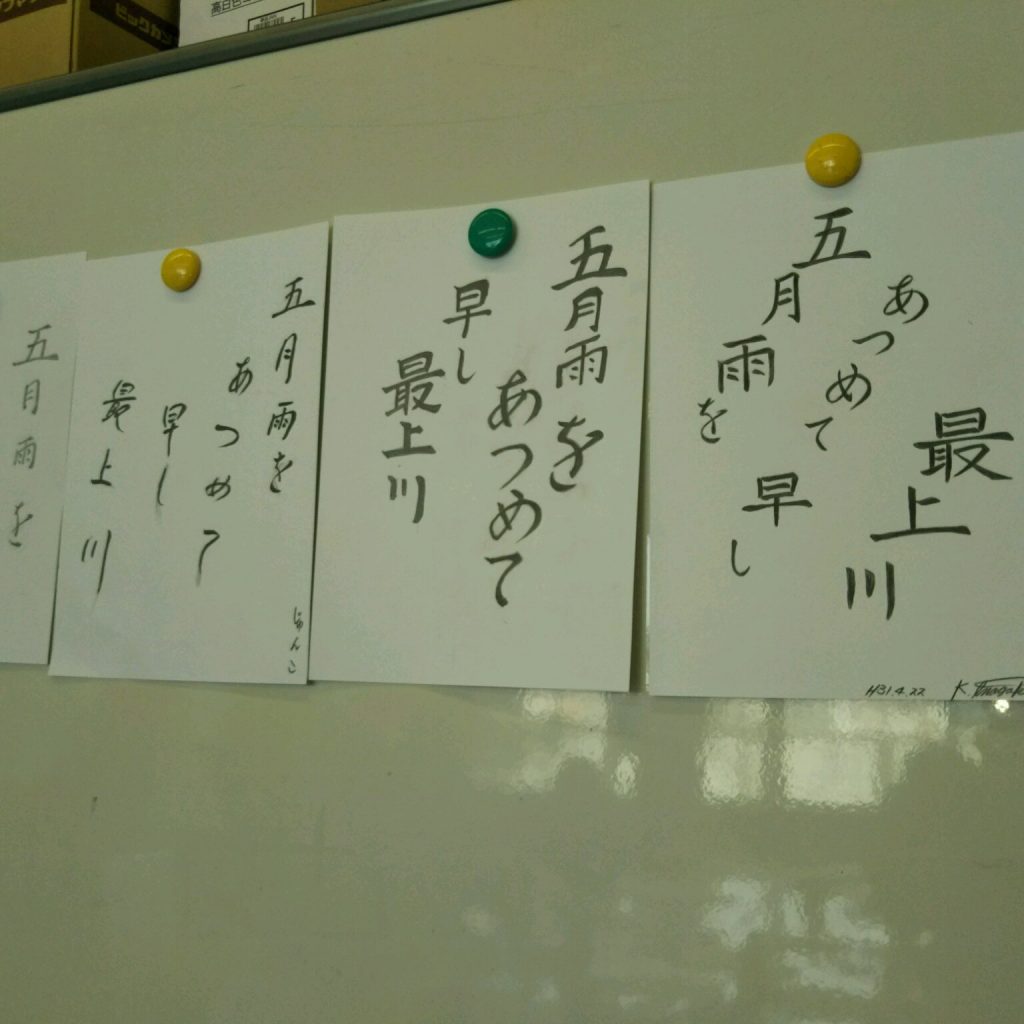 ビックカメ
五月雨を
あつめて
早し
最上川
五月雨を
あつめて
早し
最上川
じゅんこ
五月雨を
あつめて
早し
最上川
H31.4.22
五月雨を